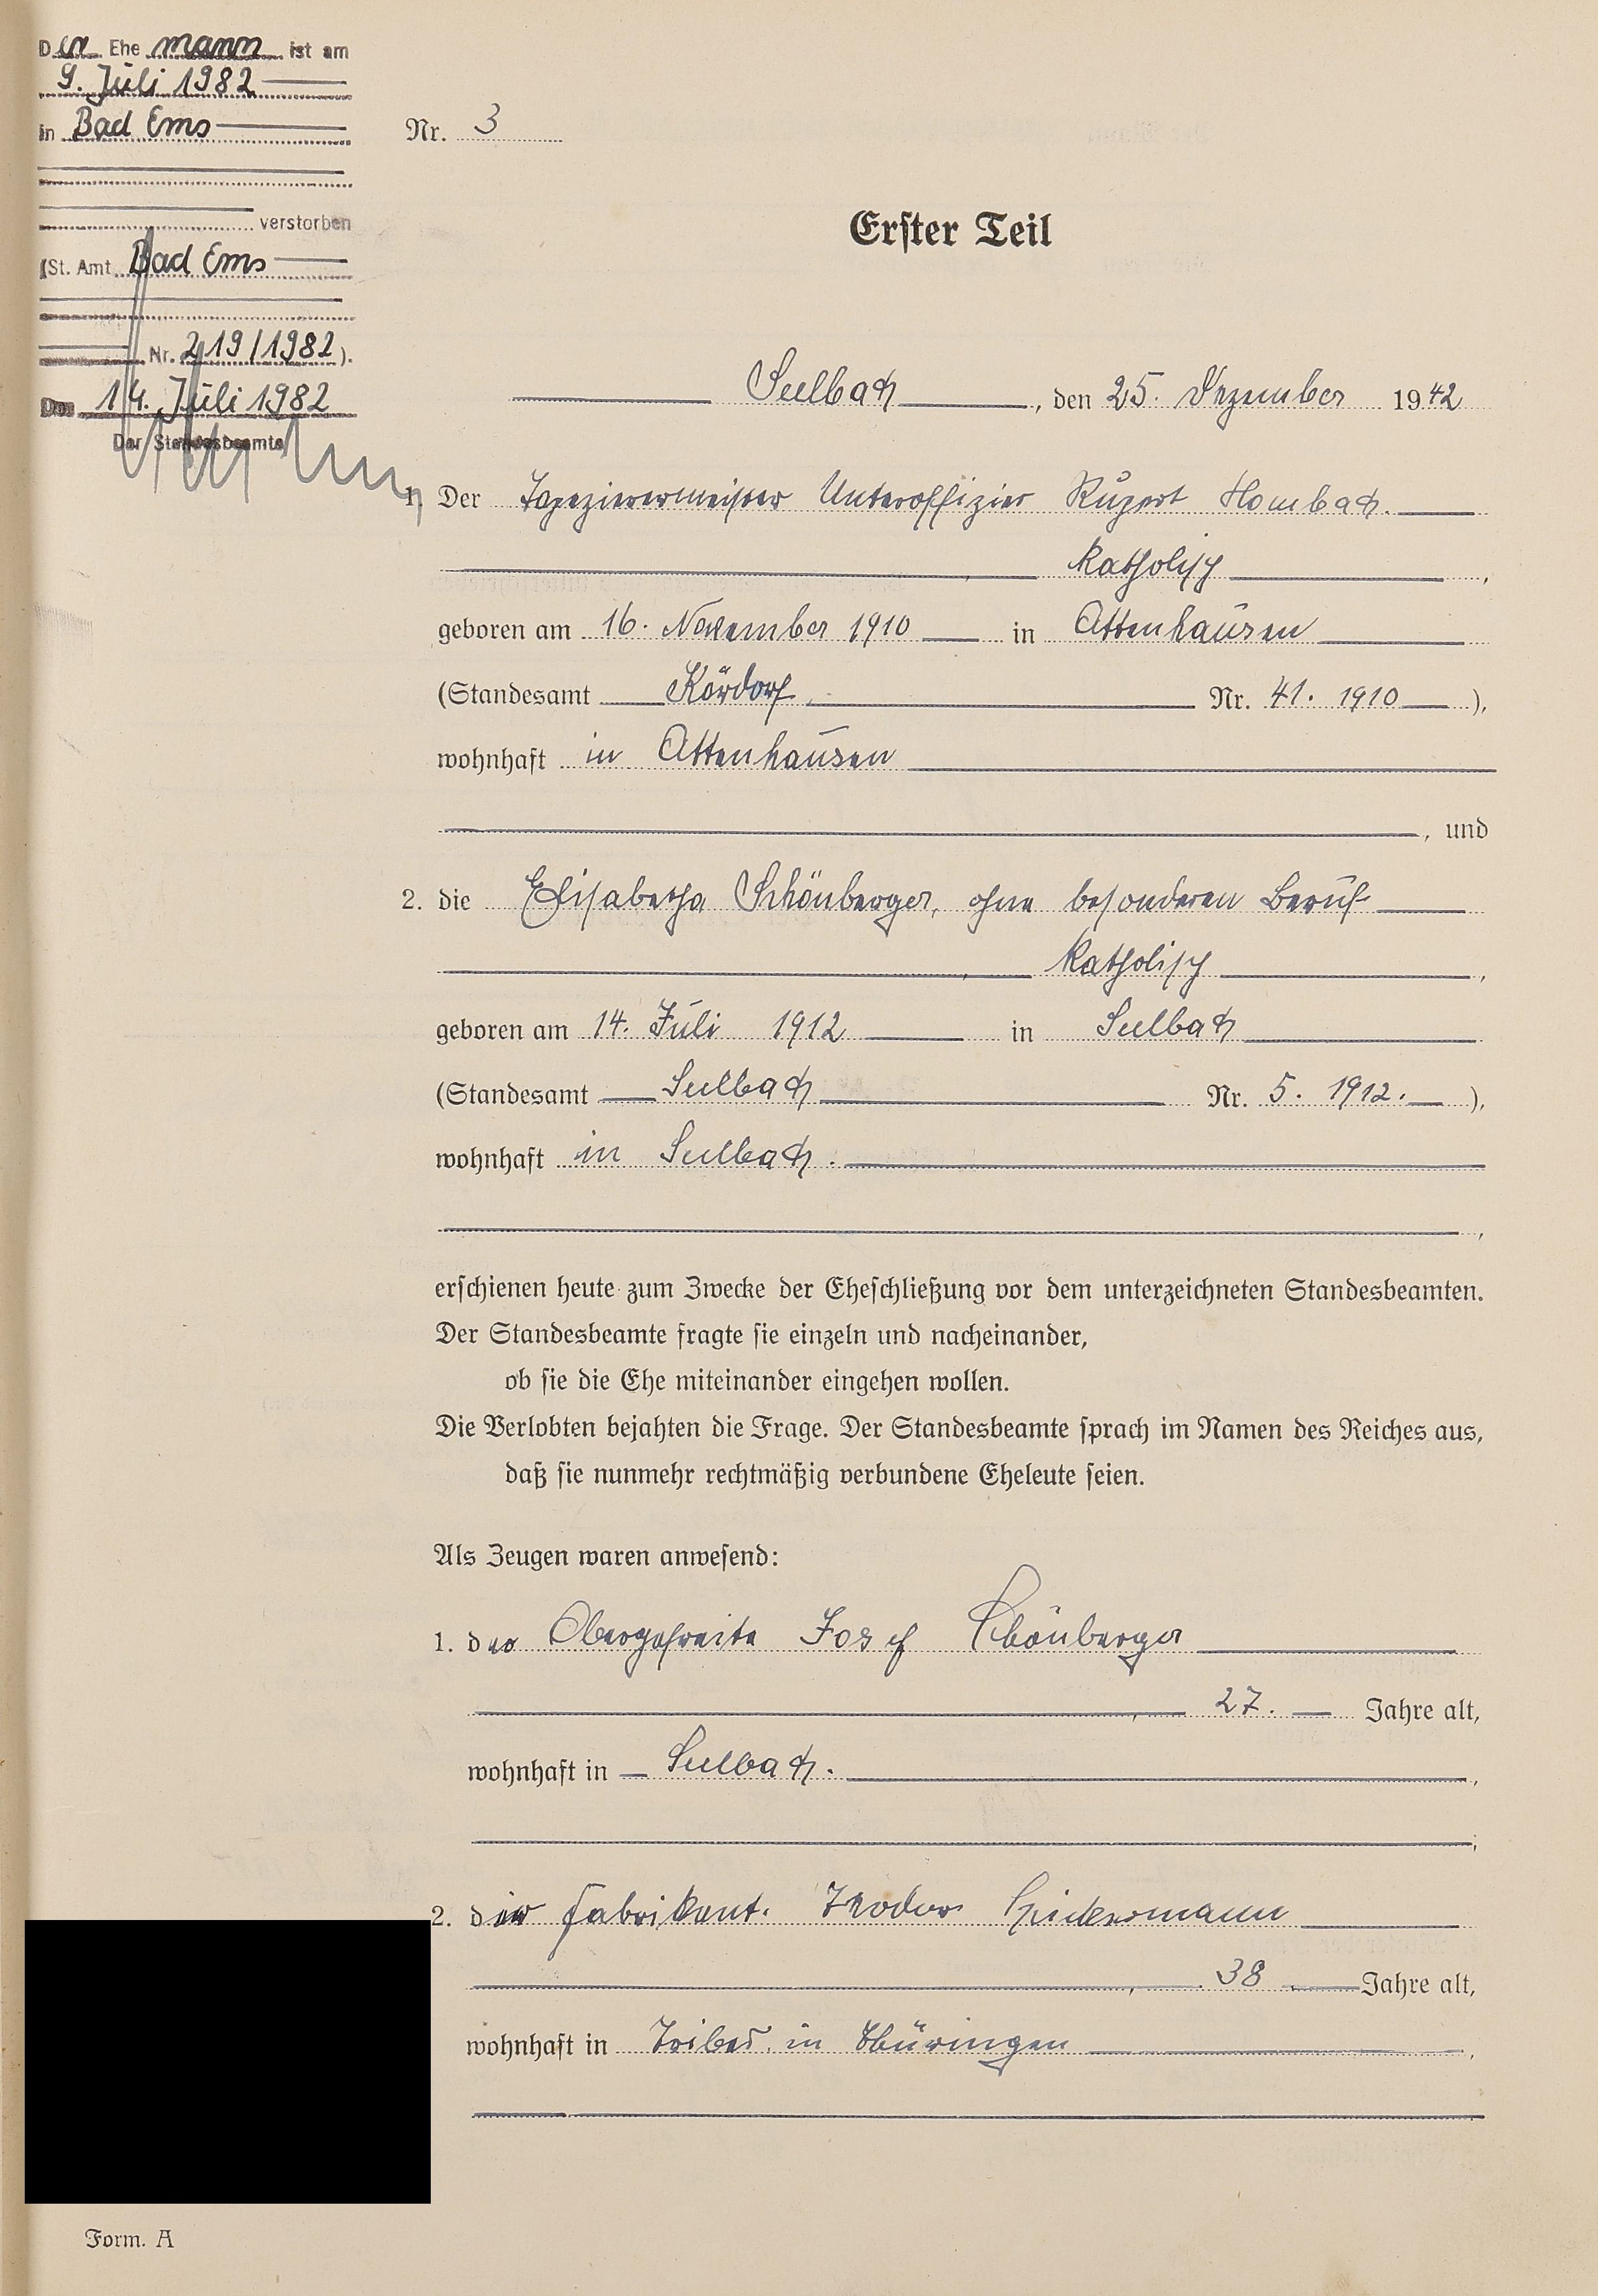 Der Ehe mann ist am
9. Juli 1982
in Bad Ems
verstorben
(St. Amt Bad Ems
Nr. 219/1982).
Den 14. Juli 1982
Der Standesbeamte
Nr. 3
Erster Teil
Seelbach, den 25. Dezember 1942
1. Der Tapezierermeister Unteroffizier Rupert Hombach.
katholisch,
geboren am 16. November 1910 in Attenhausen
(Standesamt Kördorf Nr. 41. 1910),
wohnhaft in Attenhausen
, und
2. die Elisabetha Schönberger, ohne besonderen Beruf
katholisch,
geboren am 14. Juli 1912 in Seelbach
(Standesamt Seelbach Nr. 5. 1912.),
wohnhaft in Seelbach.
erschienen heute zum Zwecke der Eheschließung vor dem unterzeichneten Standesbeamten.
Der Standesbeamte fragte sie einzeln und nacheinander,
ob sie die Ehe miteinander eingehen wollen.
Die Verlobten bejahten die Frage. Der Standesbeamte sprach im Namen des Reiches aus,
daß sie nunmehr rechtmäßig verbundene Eheleute seien.
Als Zeugen waren anwesend:
1. der Obergefreite Josef Schönberger
27. Jahre alt,
wohnhaft in Seelbach.
2. der Fabrikant. Theodor
38 Jahre alt,
wohnhaft in Tribes in Thüringen
Form. A